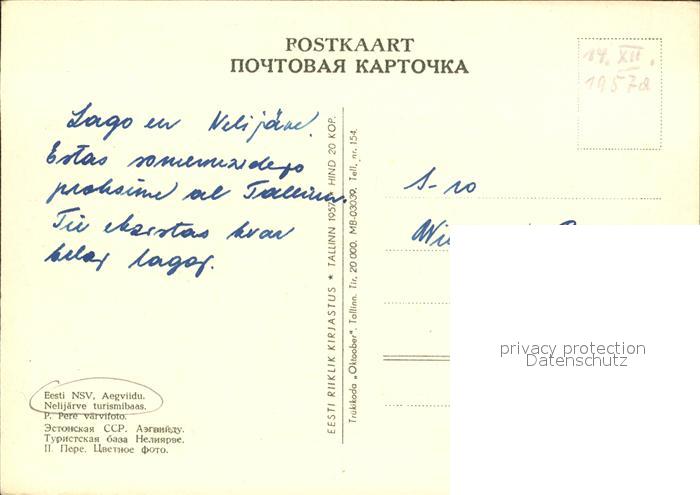 POSTKAART
ПОЧТОВАЯ КАРТОЧКА
14. XII.
1957a
Lago en Nelijärve.
Estas somerrezidejo
proksime al Tallinn.
Tie ekzistas kvar
belaj lagoj.
EESTI RIIKLIK KIRJASTUS ★ TALLINN 1957 ★ HIND 20 KOP.
Trükikoda „Oktoober", Tallinn. Tir. 20 000. MB-03039. Tell. nr. 154.
S-ro
privacy protection
Datenschutz
Eesti NSV, Aegviidu.
Nelijärve turismibaas.
P. Pere värvifoto.
Эстонская ССР. Аэгвийду.
Туристская база Нелиярве.
П. Пере. Цветное фото.